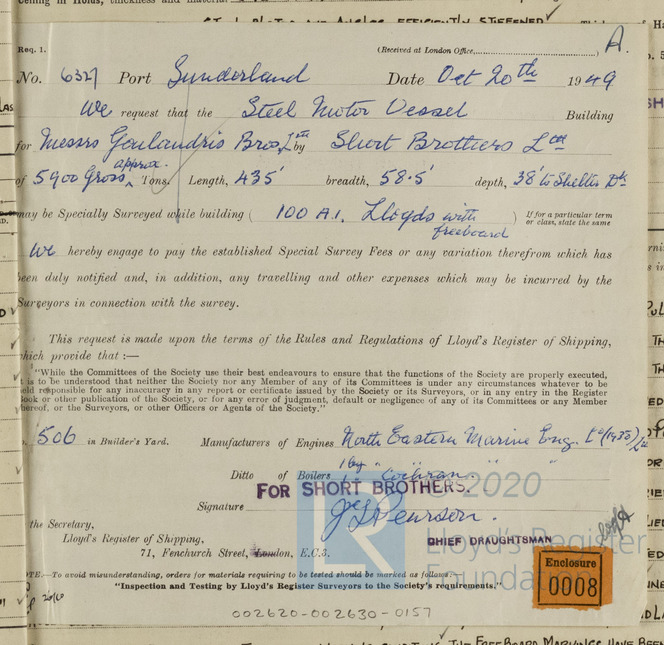 Req. 1. (Received at London Office, ) A.
No. 6327 Port Sunderland Date Oct 20th 1949
We request that the Steel Motor Vessel Building
for Messrs Goulandris Bros. Ltd by Short Brothers Ltd
approx.
of 5900 Gross Tons. Length, 435' breadth, 58.5' depth, 38' to Shelter Dk
may be Specially Surveyed while building ( 100 A.1. Lloyds with freeboard ) If for a particular term or class, state the same
We hereby engage to pay the established Special Survey Fees or any variation therefrom which has
been duly notified and, in addition, any travelling and other expenses which may be incurred by the
Surveyors in connection with the survey.
This request is made upon the terms of the Rules and Regulations of Lloyd's Register of Shipping,
which provide that :—
"While the Committees of the Society use their best endeavours to ensure that the functions of the Society are properly executed,
it is to be understood that neither the Society nor any Member of any of its Committees is under any circumstances whatever to be
held responsible for any inaccuracy in any report or certificate issued by the Society or its Surveyors, or in any entry in the Register
Book or other publication of the Society, or for any error of judgment, default or negligence of any of its Committees or any Member
thereof, or the Surveyors, or other Officers or Agents of the Society."
506 in Builder's Yard. Manufacturers of Engines North Eastern Marine Eng. Co (1938) Ltd
Ditto of Boilers 1 by " Cochran. " "
FOR SHORT BROTHERS.
© 2020
Signature J L Pearson.
CHIEF DRAUGHTSMAN
the Secretary,
Lloyd's Register of Shipping,
71, Fenchurch Street, London, E.C.3.
LR
Lloyd's Register
Foundation
Enclosure
0008
NOTE.—To avoid misunderstanding, orders for materials requiring to be tested should be marked as follows:—
"Inspection and Testing by Lloyd's Register Surveyors to the Society's requirements."
002620-002630-0157